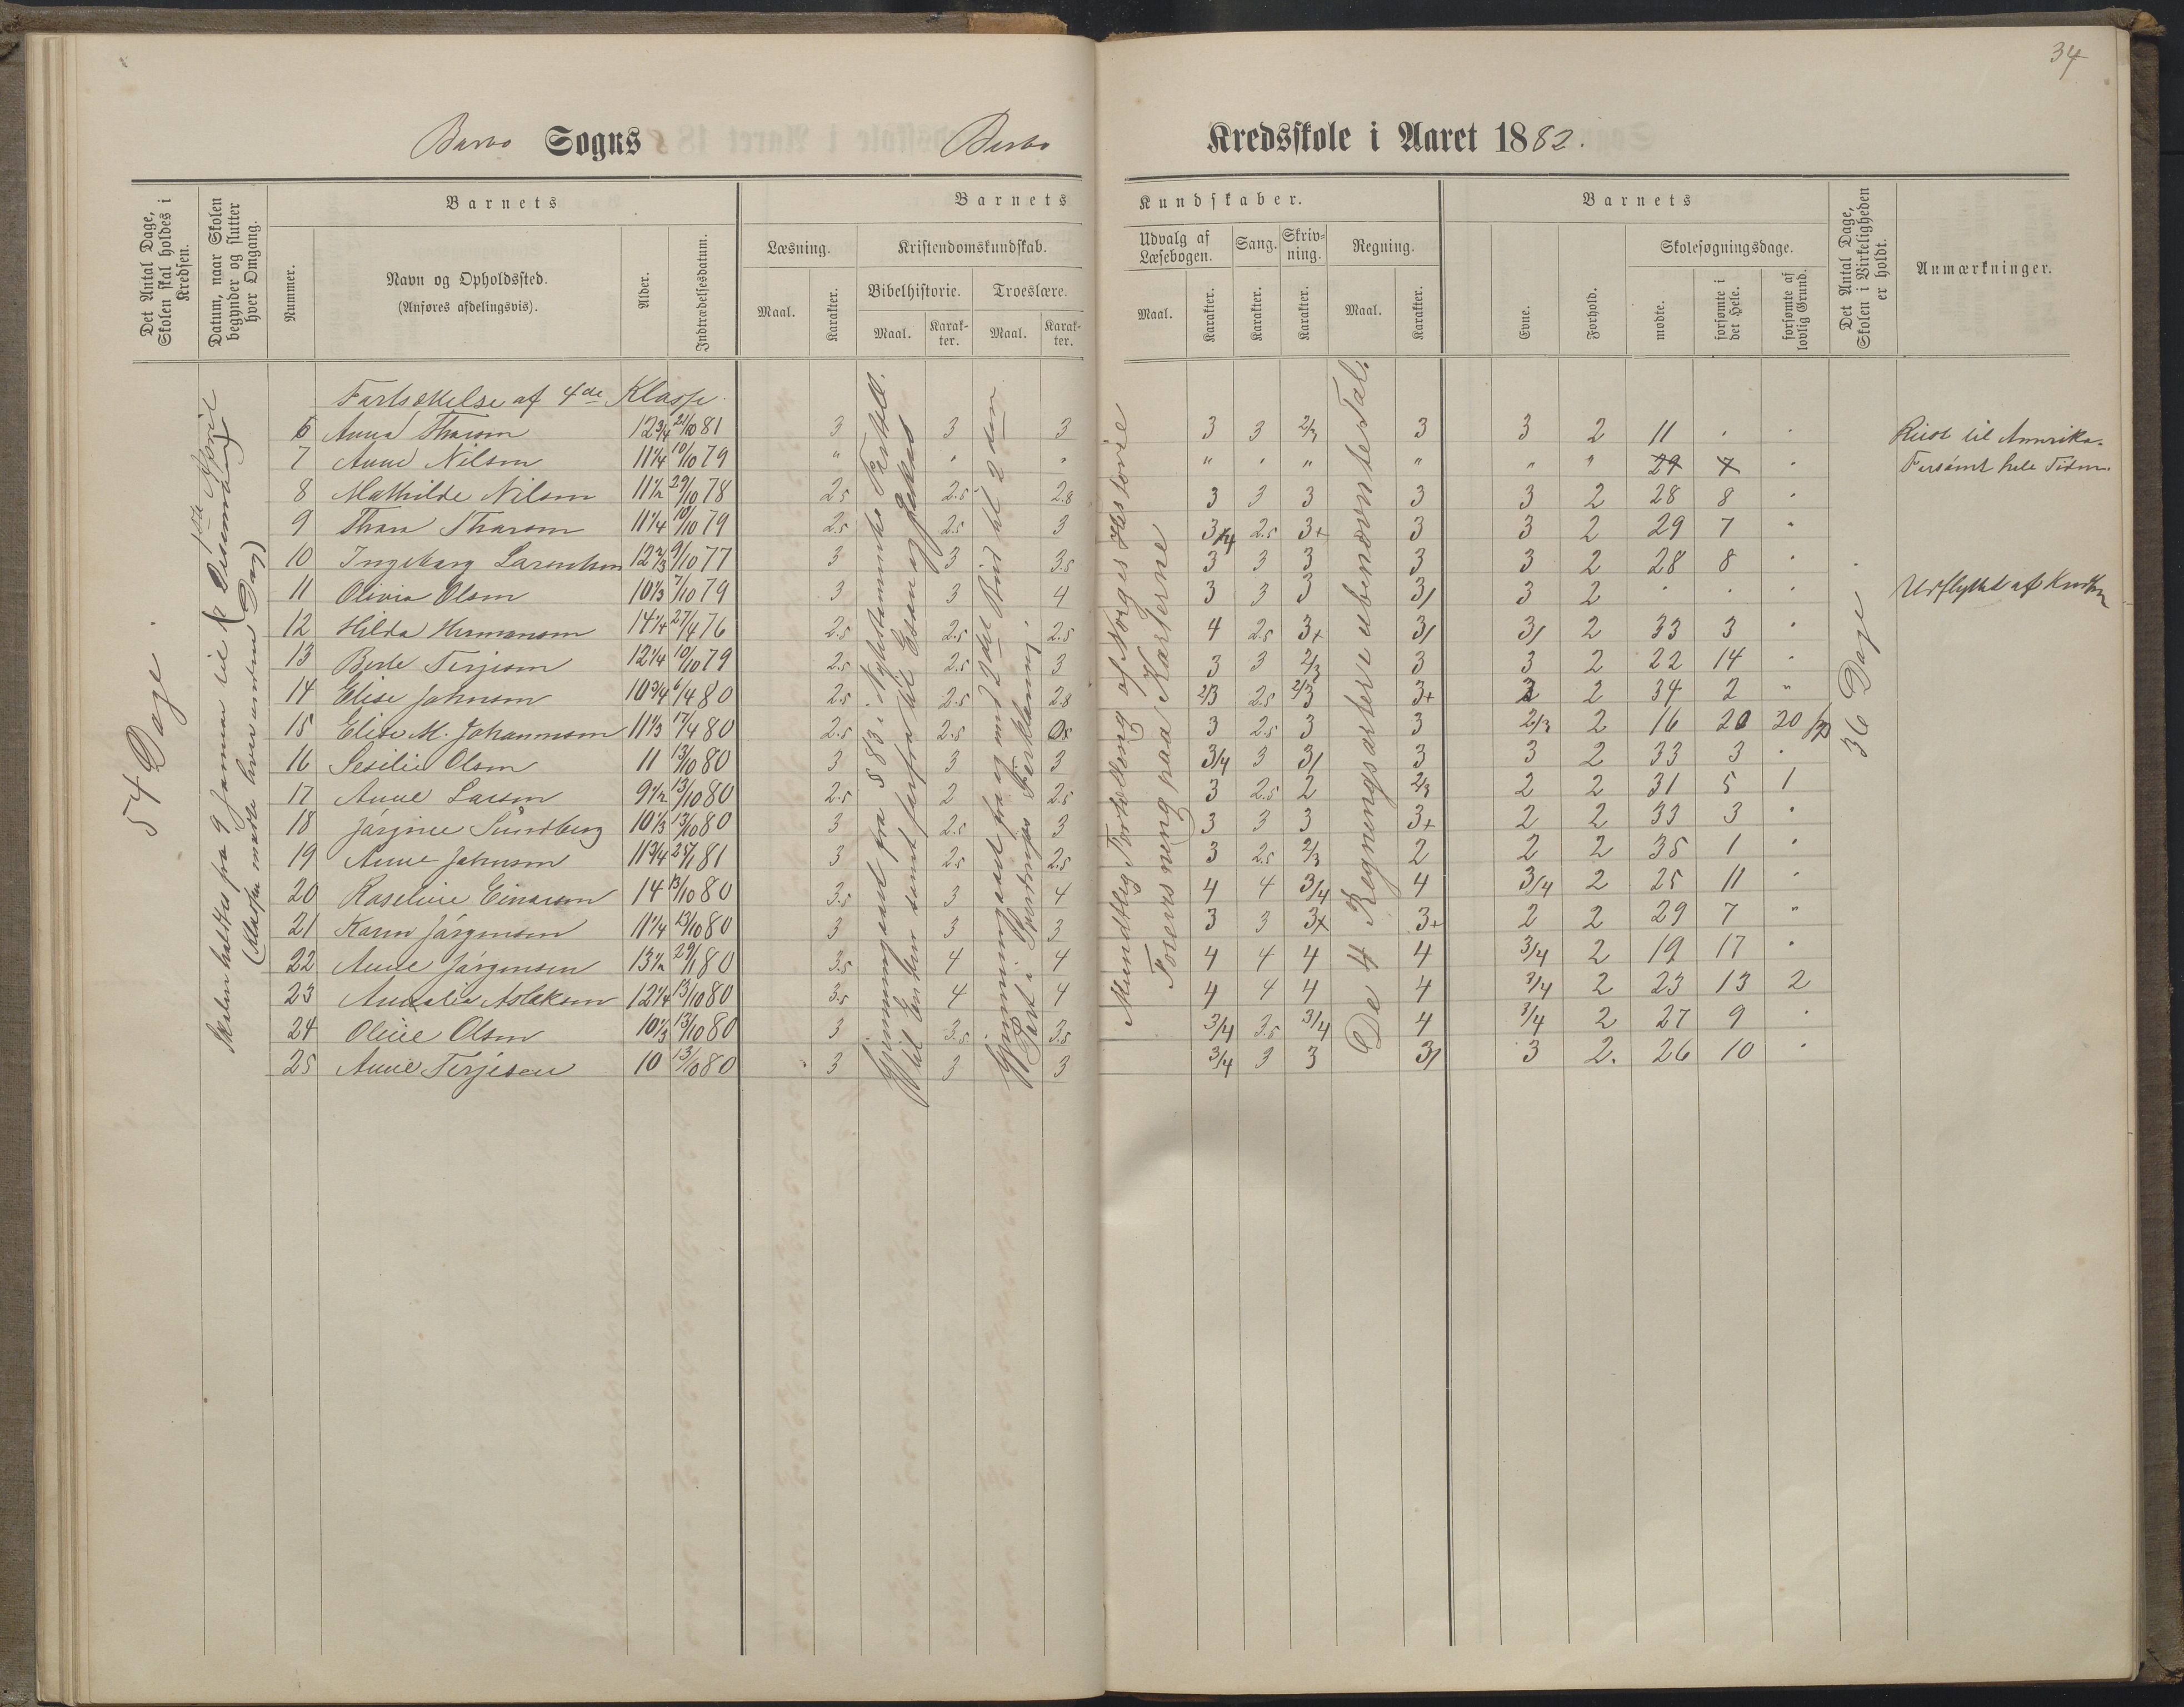 34
Barbo Sogns Barbo Kredsskole i Aaret 1882.
Det Antal Dage, Skolen skal holdes i Kredsen.
Datum, naar Skolen begynder og slutter hver Omgang.
Barnets
Nummer.
Navn og Opholdssted.
(Anføres afdelingsvis).
Alder.
Indtrædelsesdatum.
Barnets Kundskaber.
Læsning.
Maal. Karakter.
Kristendomskundskab.
Bibelhistorie. Troeslære.
Maal. Karakter. Maal. Karakter.
Udvalg af Læsebogen.
Maal. Karakter.
Sang. Karakter.
Skrivning. Karakter.
Regning.
Maal. Karakter.
Barnets
Evne. Forhold.
Skolesøgningsdage.
mødte. forsømte i det Hele. forsømte af lovlig Grund.
Det Antal Dage, Skolen i Virkeligheden er holdt.
Anmærkninger.
54 Dage.
Skolen holdtes fra 9 Januar til 1ste April
(Klassen mødte hverandre Dag)
Fortsættelse af 4de Klasse.
6 Anna Thorsen 12 3/4 21/10 81 3 3 3 3 3 2/3 3 3 2 11 . . Reist til Amerika.
7 Anne Nilsen 11 1/4 10/10 79 " " " " " " " " " 29 7 " Forsømt hele Tiden.
8 Mathilde Nilsen 11 1/2 29/10 78 2.5 2.5 2.8 3 3 3 3 3 2 28 8 "
9 Thora Thorsen 11 1/4 10/10 79 2.5 2.5 3 3/4 2.5 3+ 3 3 2 29 7 "
10 Ingeborg Larentsen 12 2/3 9/10 77 3 3 3.5 3 3 3 3 3 2 28 8 "
11 Olivia Olsen 10 1/3 7/10 79 3 3 4 3 3 3 3/ 3 2 . . . Udflyttet af Kredsen
12 Hilda Hermansen 14 1/4 27/4 76 2.5 2.5 2.5 4 2.5 3+ 3/ 3/ 2 33 3 "
13 Berte Terjesen 12 1/4 10/10 79 2.5 2.5 3 3 3 2/3 3 3 2 22 14 "
14 Elise Johnsen 10 3/4 6/4 80 2.5 2.5 2.8 2/3 2.5 2/3 3+ 2 2 34 2 "
15 Elise M. Johannesen 11 1/3 17/4 80 2.5 2.5 3 2.5 3 3 2/3 2 16 20 20
16 Sesilie Olsen 11 13/10 80 3 3 3 3/4 3 3/ 3 3 2 33 3 .
17 Anne Larsen 9 1/2 13/10 80 2.5 2 2.5 3 2.5 2 2/3 2 2 31 5 1
18 Jørgine Sundberg 10 1/3 13/10 80 3 2.5 3 3 3 3 3+ 2 2 33 3 "
19 Anne Johnsen 11 3/4 25/1 81 3 2.5 2.5 3 2.5 2/3 2 2 2 35 1 "
20 Roseline Einarsen 14 13/10 80 3.5 3 4 4 4 3/4 4 3/4 2 25 11 "
21 Karen Jørgensen 11 1/4 13/10 80 3 3 3 3 3 3+ 3+ 2 2 29 7 "
22 Anne Jørgensen 13 1/2 29/1 80 3.5 4 4 4 4 4 4 3/4 2 19 17 "
23 Amalia Aslaksen 12 1/4 13/10 80 3.5 4 4 4 4 4 4 3/4 2 23 13 2
24 Oline Olsen 10 1/3 13/10 80 3 3.5 3.5 3/4 3.5 3/4 4 3/4 2 27 9 "
25 Anne Terjesen 10 13/10 80 3 3 3 3/4 3 3 3/ 3 2. 26 10 "
Gjennemgaaet fra § 83 i Nytestamente
Gjennemgaaet fra og med 3die Bud til 2den
Part i Pontopidans Forklaring.
Mundtlig Fortælling af Norges Historie
Forevisning paa Karterne
De 4 Regningsarter i ubenævnte Tal.
36 Dage.